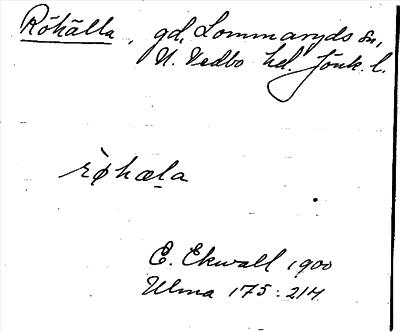 Röhälla, gd, Lommaryds sn,
N. Vedbo hd. Jönk. l.
ròhæla
E. Ekwall 1900
Ulma 175:214